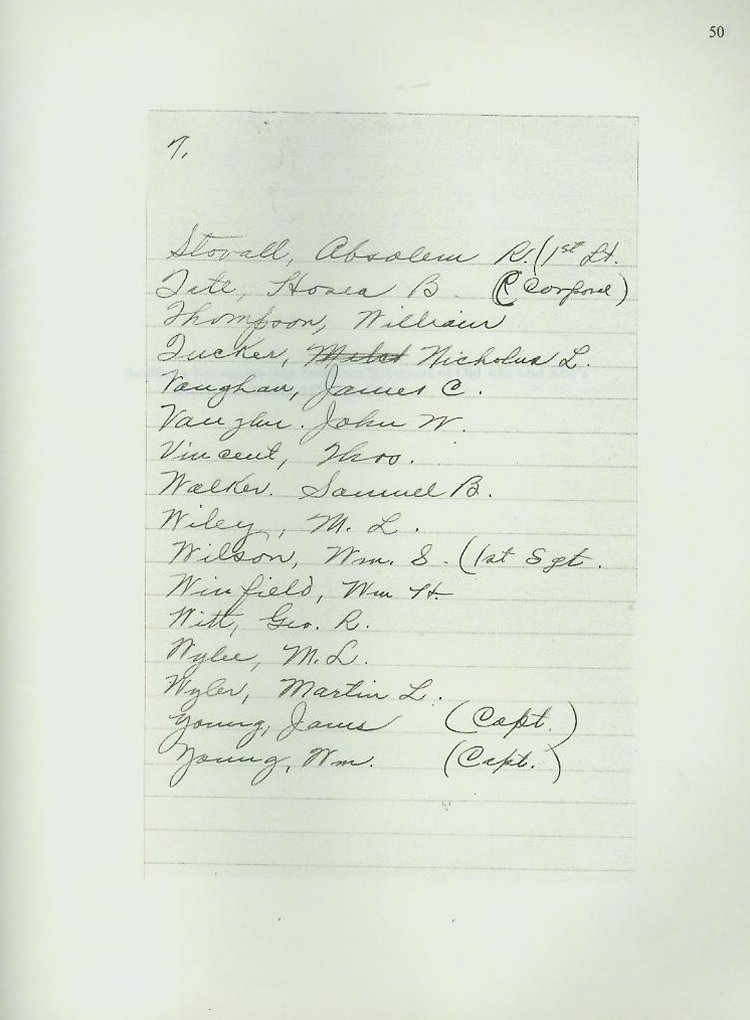 50
7.
Stovall, Absolem R. (1st Lt.
Tate, Hosea B. (Corporal)
Thompson, William
Tucker, Nicholas L.
Vaughan, James C.
Vaughn. John W.
Vincent, Thos.
Walker. Samuel B.
Wiley, M. L.
Wilson, Wm. S. (1st Sgt.
Winfield, Wm H.
Witt, Geo. R.
Wylie, M. L.
Wyler, Martin L.
Young, James (Capt.)
Young, Wm. (Capt.)